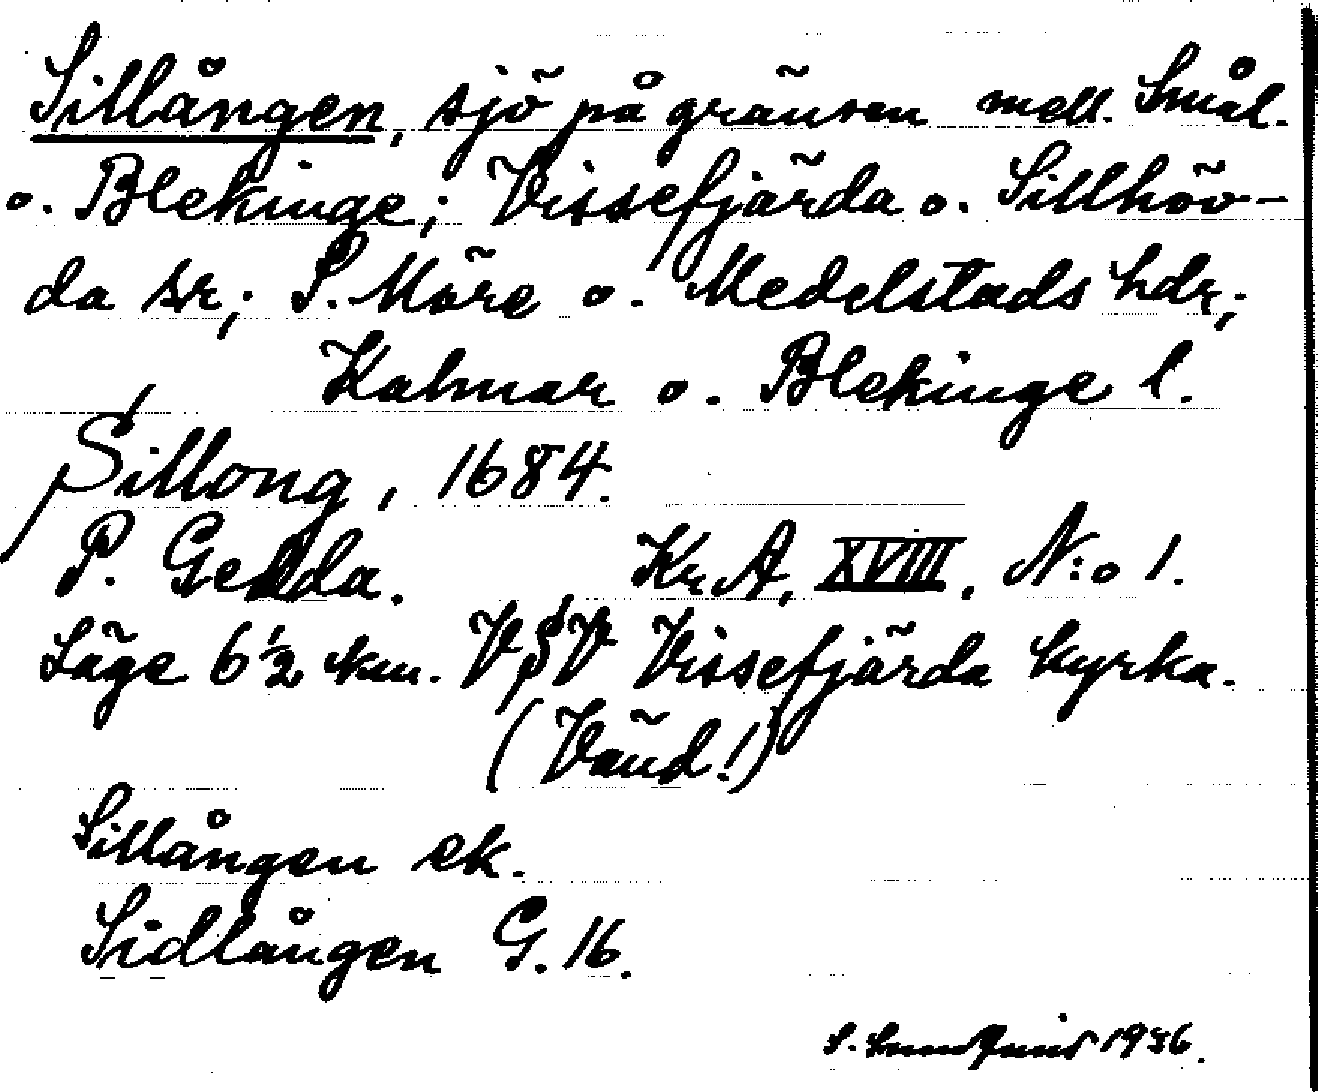 Sillången, sjö på gränsen mell. Smål.
o. Blekinge; Vissefjärda o. Sillhöv-
da sr; S. Möre o. Medelstads hdr,
Kalmar o. Blekinge l.
Sillong, 1684.
P. Gedda. Kr. A, XVIII, N:o 1.
Läge 6½ km. VSV Vissefjärda kyrka.
(Vänd!)
Sillången ek.
Sidlången G. 16.
1936.